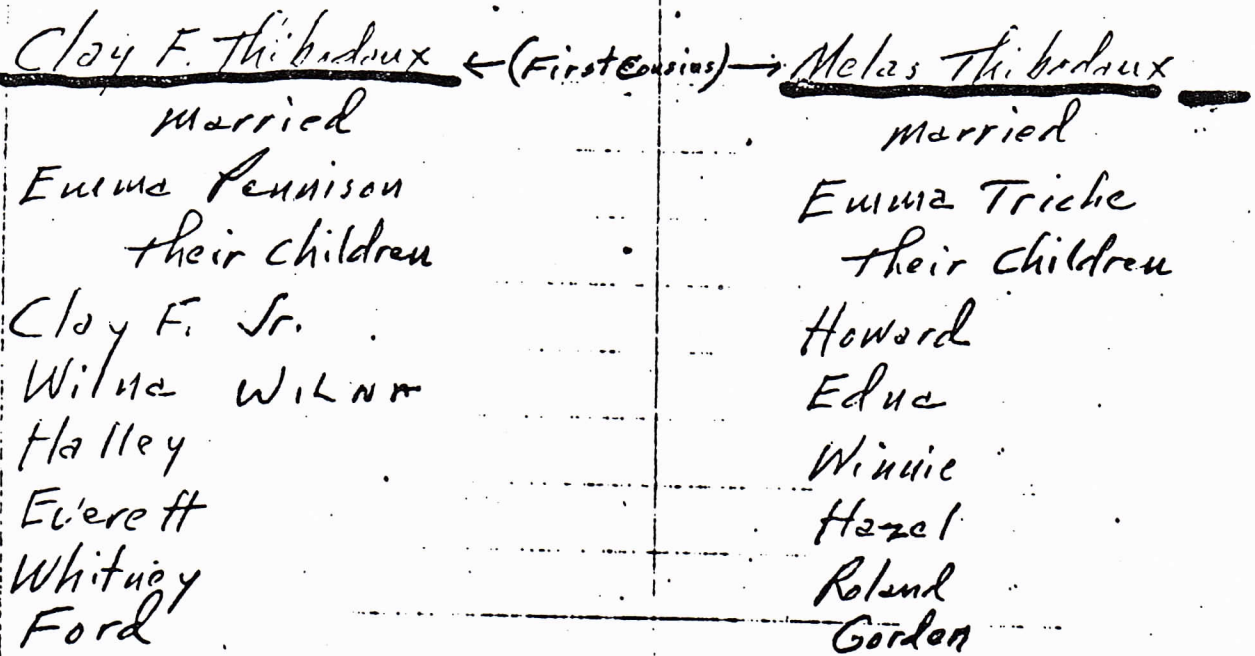 Clay F. Thibodaux ←(First Cousins)→ Melas Thibodaux
married
Emma Pennison
their children
Clay F. Jr.
Wilna WILNA
Halley
Everett
Whitney
Ford
married
Emma Triche
their children
Howard
Edna
Winnie
Hazel
Roland
Gorden